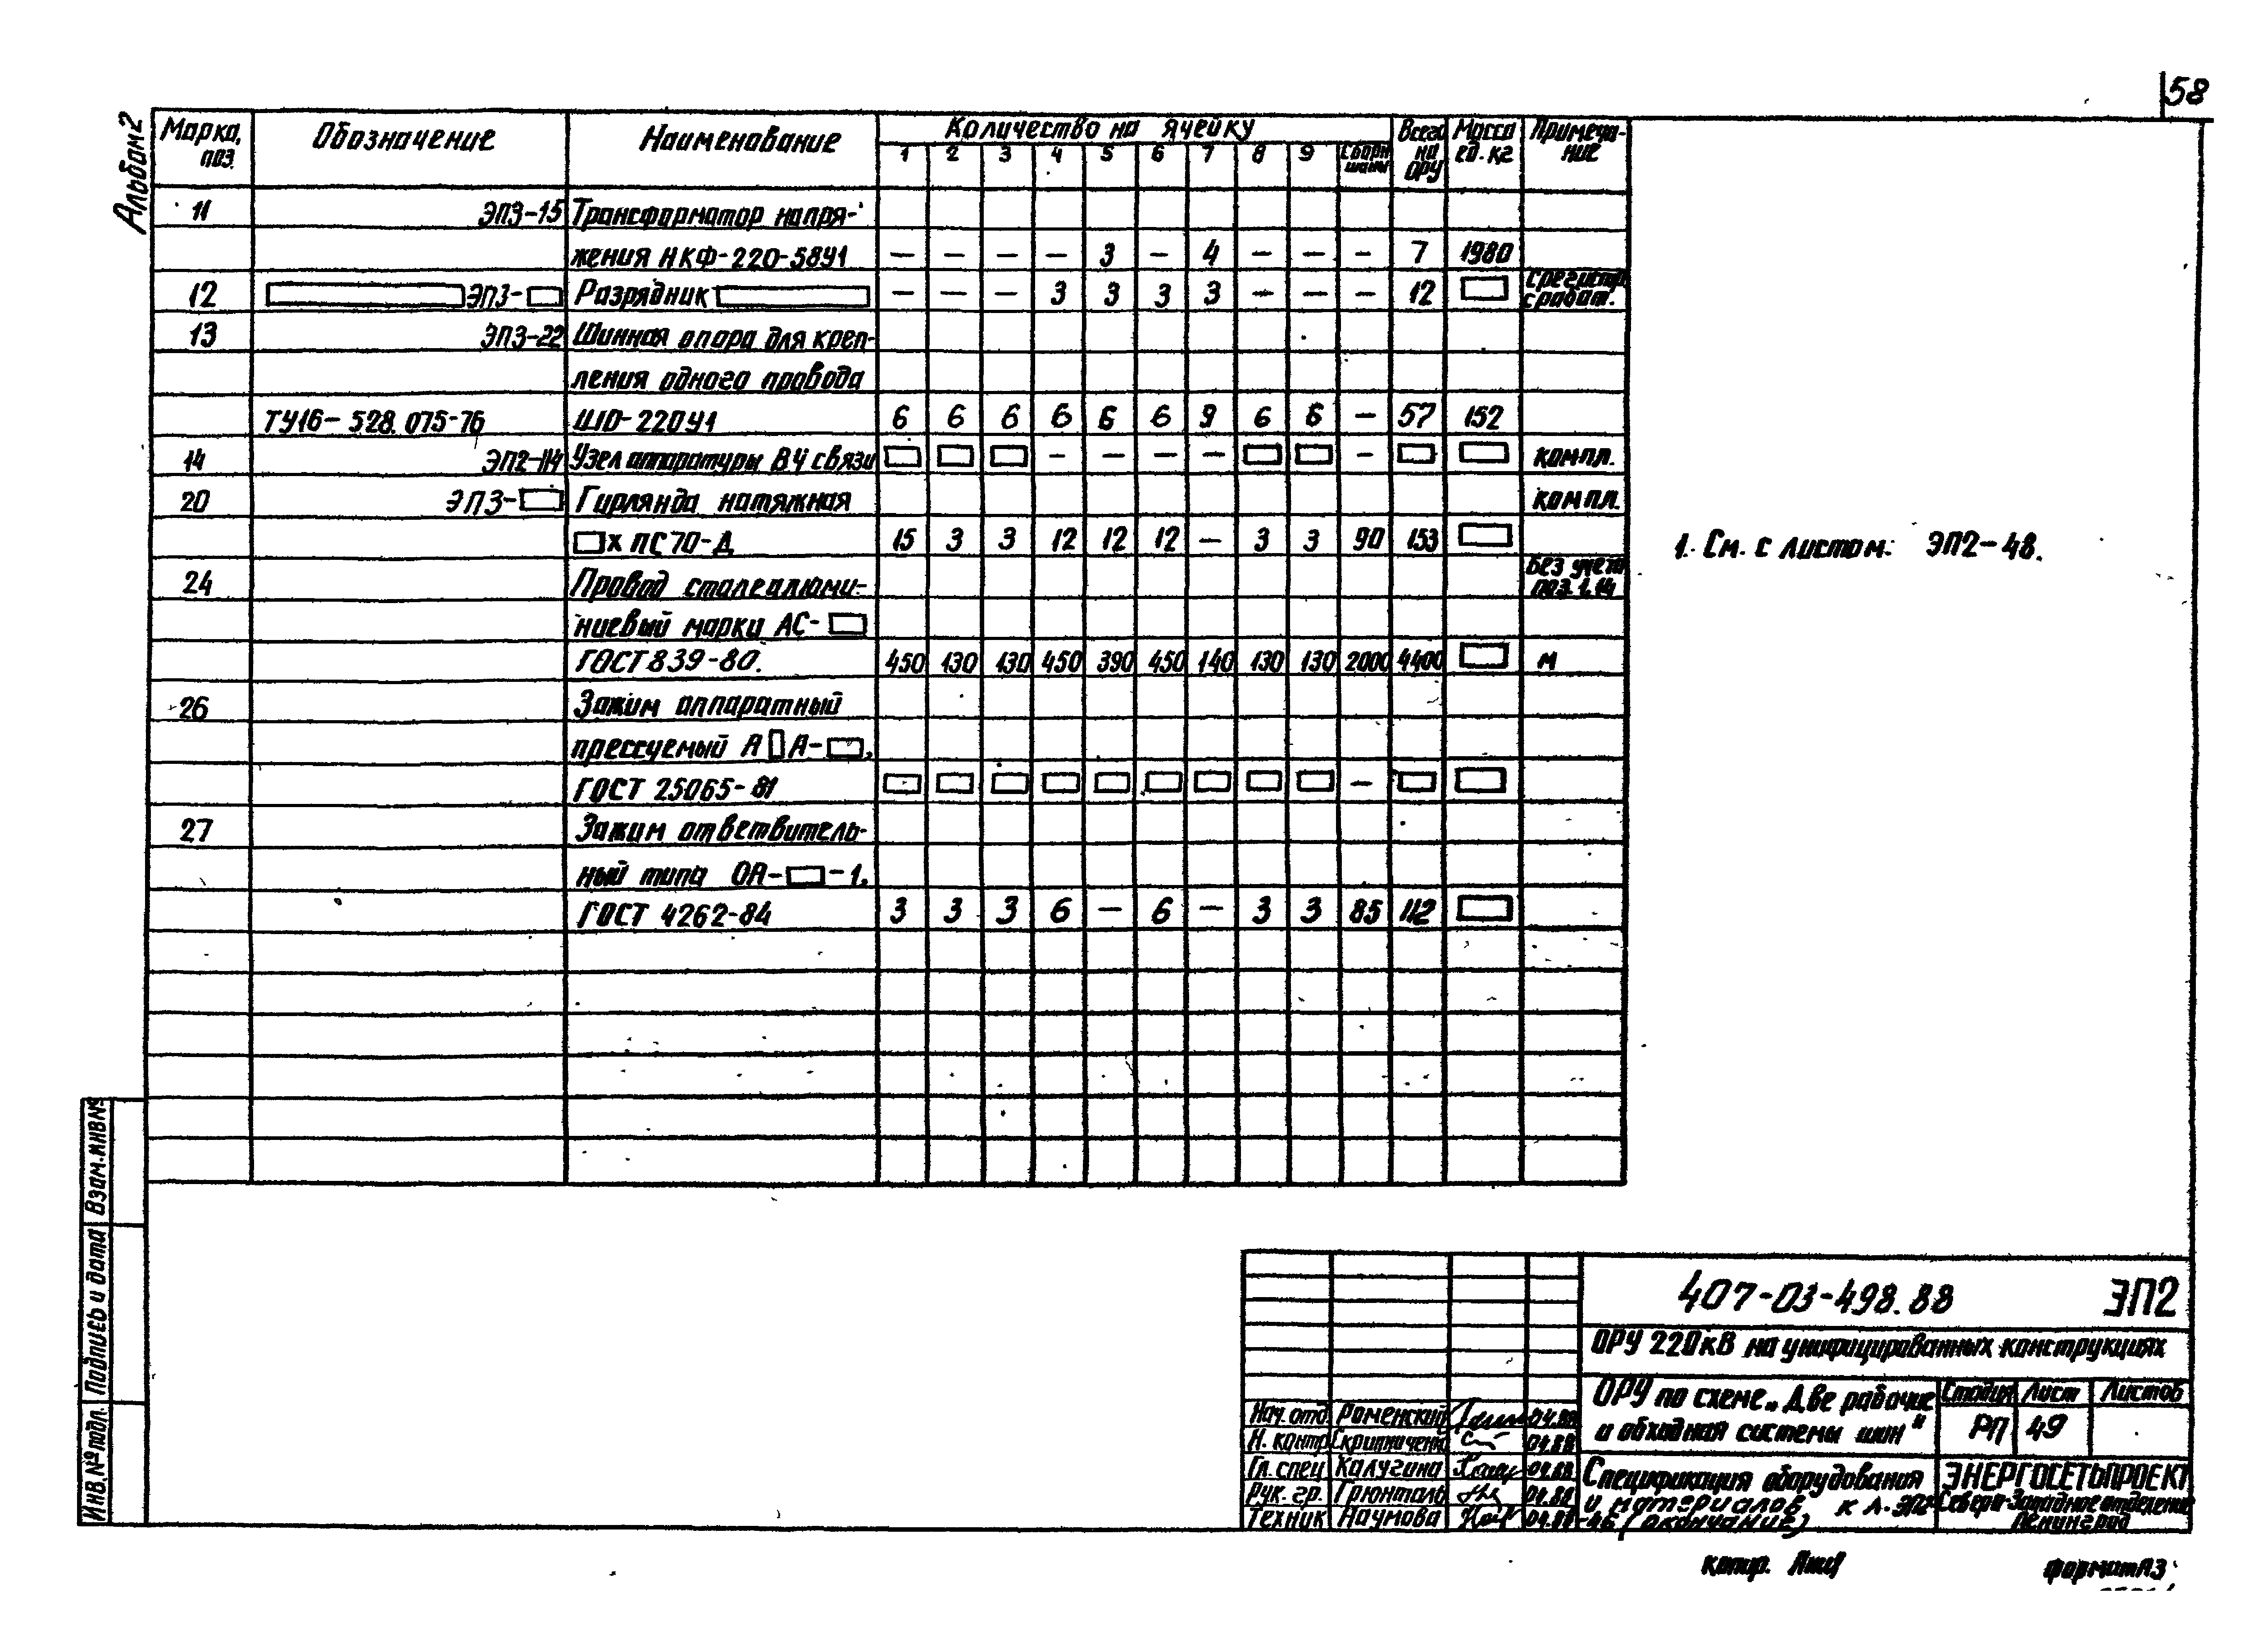 58
Альбом 2
Марка, поз. Обозначение Наименование Количество на ячейку Всего на ОРУ Масса ед. кг Примеча-ние
1 2 3 4 5 6 7 8 9 Сборн. шины
11 ЭП3-15 Трансформатор напря-
жения НКФ-220-58У1 — — — — 3 — 4 — — — 7 1980
12 ЭП3- Разрядник — — — 3 3 3 3 — — — 12 с регистр. сработ.
13 ЭП3-22 Шинная опора для креп-
ления одного провода
ТУ16-528.075-76 ШО-220У1 6 6 6 6 6 6 9 6 6 — 57 152
14 ЭП2-114 Узел аппаратуры ВЧ связи — — — — — компл.
20 ЭП3- Гирлянда натяжная компл.
х ПС70-Д 15 3 3 12 12 12 — 3 3 90 153
24 Провод сталеалюми- Без учета поз. 1.14
ниевый марки АС-
ГОСТ 839-80. 450 130 130 450 390 450 140 130 130 2000 4400 м
26 Зажим аппаратный
прессуемый А А- ,
ГОСТ 25065-81 —
27 Зажим ответвитель-
ный типа ОА- -1.
ГОСТ 4262-84 3 3 3 6 — 6 — 3 3 85 112
1. См. с листом: ЭП2-48.
Взам. инв №
Подпись и дата
Инв. № подл.
407-03-498.88 ЭП2
ОРУ 220 кВ на унифицированных конструкциях
ОРУ по схеме „Две рабочие
и обходная системы шин"
Стадия Лист Листов
РП 49
Нач. отд. Роменский 04.88
Н. контр. Скрипниченко 04.88
Гл. спец Калугина 04.88
Рук. гр. Грюнталь 04.88
Техник Наумова 04.88
Спецификация оборудования
и материалов к л. ЭП2
-46 (окончание)
ЭНЕРГОСЕТЬПРОЕКТ
Северо-Западное отделение
Ленинград
копир. Формат А3